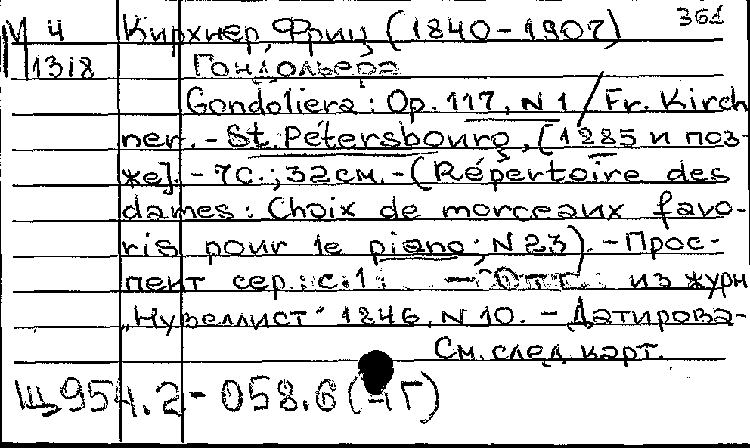 361
М 4 Кирхнер, Фриц (1840-1907)
1318 Гондольера
Gondoliera: Op. 117, N 1 / Fr. Kirch
ner. - St. Pétersbourg, [1885 и поз-
же]. - 7с.; 32см. - (Répertoire des
dames: Choix de morceaux favo-
ris pour le piano; N 23). - Прос-
пект сер.: с.1. - Отт. из журн
„Нувеллист" 1846, N 10. - Датирова-
См. след. карт.
Щ954.2-058.6(4Г)